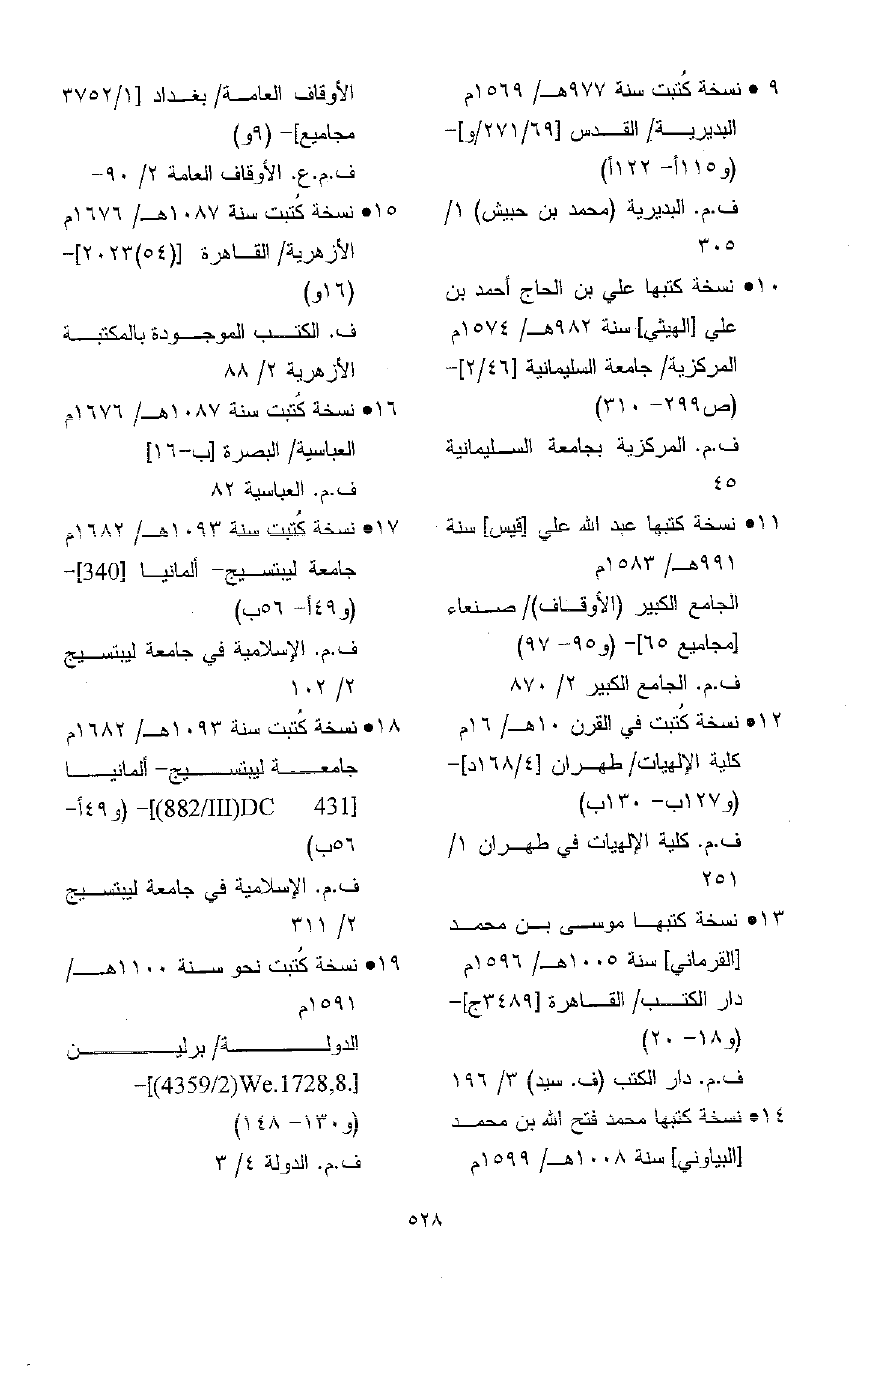 ٩ • نسخة كُتبت سنة ٩٧٧هـ/ ١٥٦٩م
البديرية/ القدس [٢٧١/٦٩/و]-
(و١١٥أ- ١٢٢أ)
ف.م. البديرية (محمد بن حبيش) ١/
٣٠٥
١٠• نسخة كتبها علي بن الحاج أحمد بن
علي [الهيثي] سنة ٩٨٢هـ/ ١٥٧٤م
المركزية/ جامعة السليمانية [٢/٤٦]-
(ص٢٩٩- ٣١٠)
ف.م. المركزية بجامعة السليمانية
٤٥
١١• نسخة كتبها عبد الله علي [قيس] سنة
٩٩١هـ/ ١٥٨٣م
الجامع الكبير (الأوقاف)/ صنعاء
[مجاميع ٦٥]- (و٩٥- ٩٧)
ف.م. الجامع الكبير ٢/ ٨٧٠
١٢• نسخة كُتبت في القرن ١٠هـ/ ١٦م
كلية الإلهيات/ طهران [١٦٨/٤د]-
(و١٢٧ب- ١٣٠ب)
ف.م. كلية الإلهيات في طهران ١/
٢٥١
١٣• نسخة كتبها موسى بن محمد
[القرماني] سنة ١٠٠٥هـ/ ١٥٩٦م
دار الكتب/ القاهرة [٣٤٨٩ج]-
(و١٨- ٢٠)
ف.م. دار الكتب (ف. سيد) ٣/ ١٩٦
١٤• نسخة كتبها محمد فتح الله بن محمد
[البياوني] سنة ١٠٠٨هـ/ ١٥٩٩م
الأوقاف العامة/ بغداد [٣٧٥٢/١
مجاميع]- (٩و)
ف.م.ع. الأوقاف العامة ٢/ ٩٠-
١٥• نسخة كُتبت سنة ١٠٨٧هـ/ ١٦٧٦م
الأزهرية/ القاهرة [(٥٤)٢٠٢٣]-
(١٦و)
ف. الكتب الموجودة بالمكتبة
الأزهرية ٢/ ٨٨
١٦• نسخة كُتبت سنة ١٠٨٧هـ/ ١٦٧٦م
العباسية/ البصرة [ب-١٦]
ف.م. العباسية ٨٢
١٧• نسخة كُتبت سنة ١٠٩٣هـ/ ١٦٨٢م
جامعة ليبتسيج- ألمانيا [340]-
(و٤٩أ- ٥٦ب)
ف.م. الإسلامية في جامعة ليبتسيج
٢/ ١٠٢
١٨• نسخة كُتبت سنة ١٠٩٣هـ/ ١٦٨٢م
جامعة ليبتسيج- ألمانيا
[431 DC(882/III)]- (و٤٩أ-
٥٦ب)
ف.م. الإسلامية في جامعة ليبتسيج
٢/ ٣١١
١٩• نسخة كُتبت نحو سنة ١١٠٠هـ/
١٥٩١م
الدولة/ برلين
[We.1728,8.(4359/2)]-
(و١٣٠- ١٤٨)
ف.م. الدولة ٤/ ٣
٥٢٨